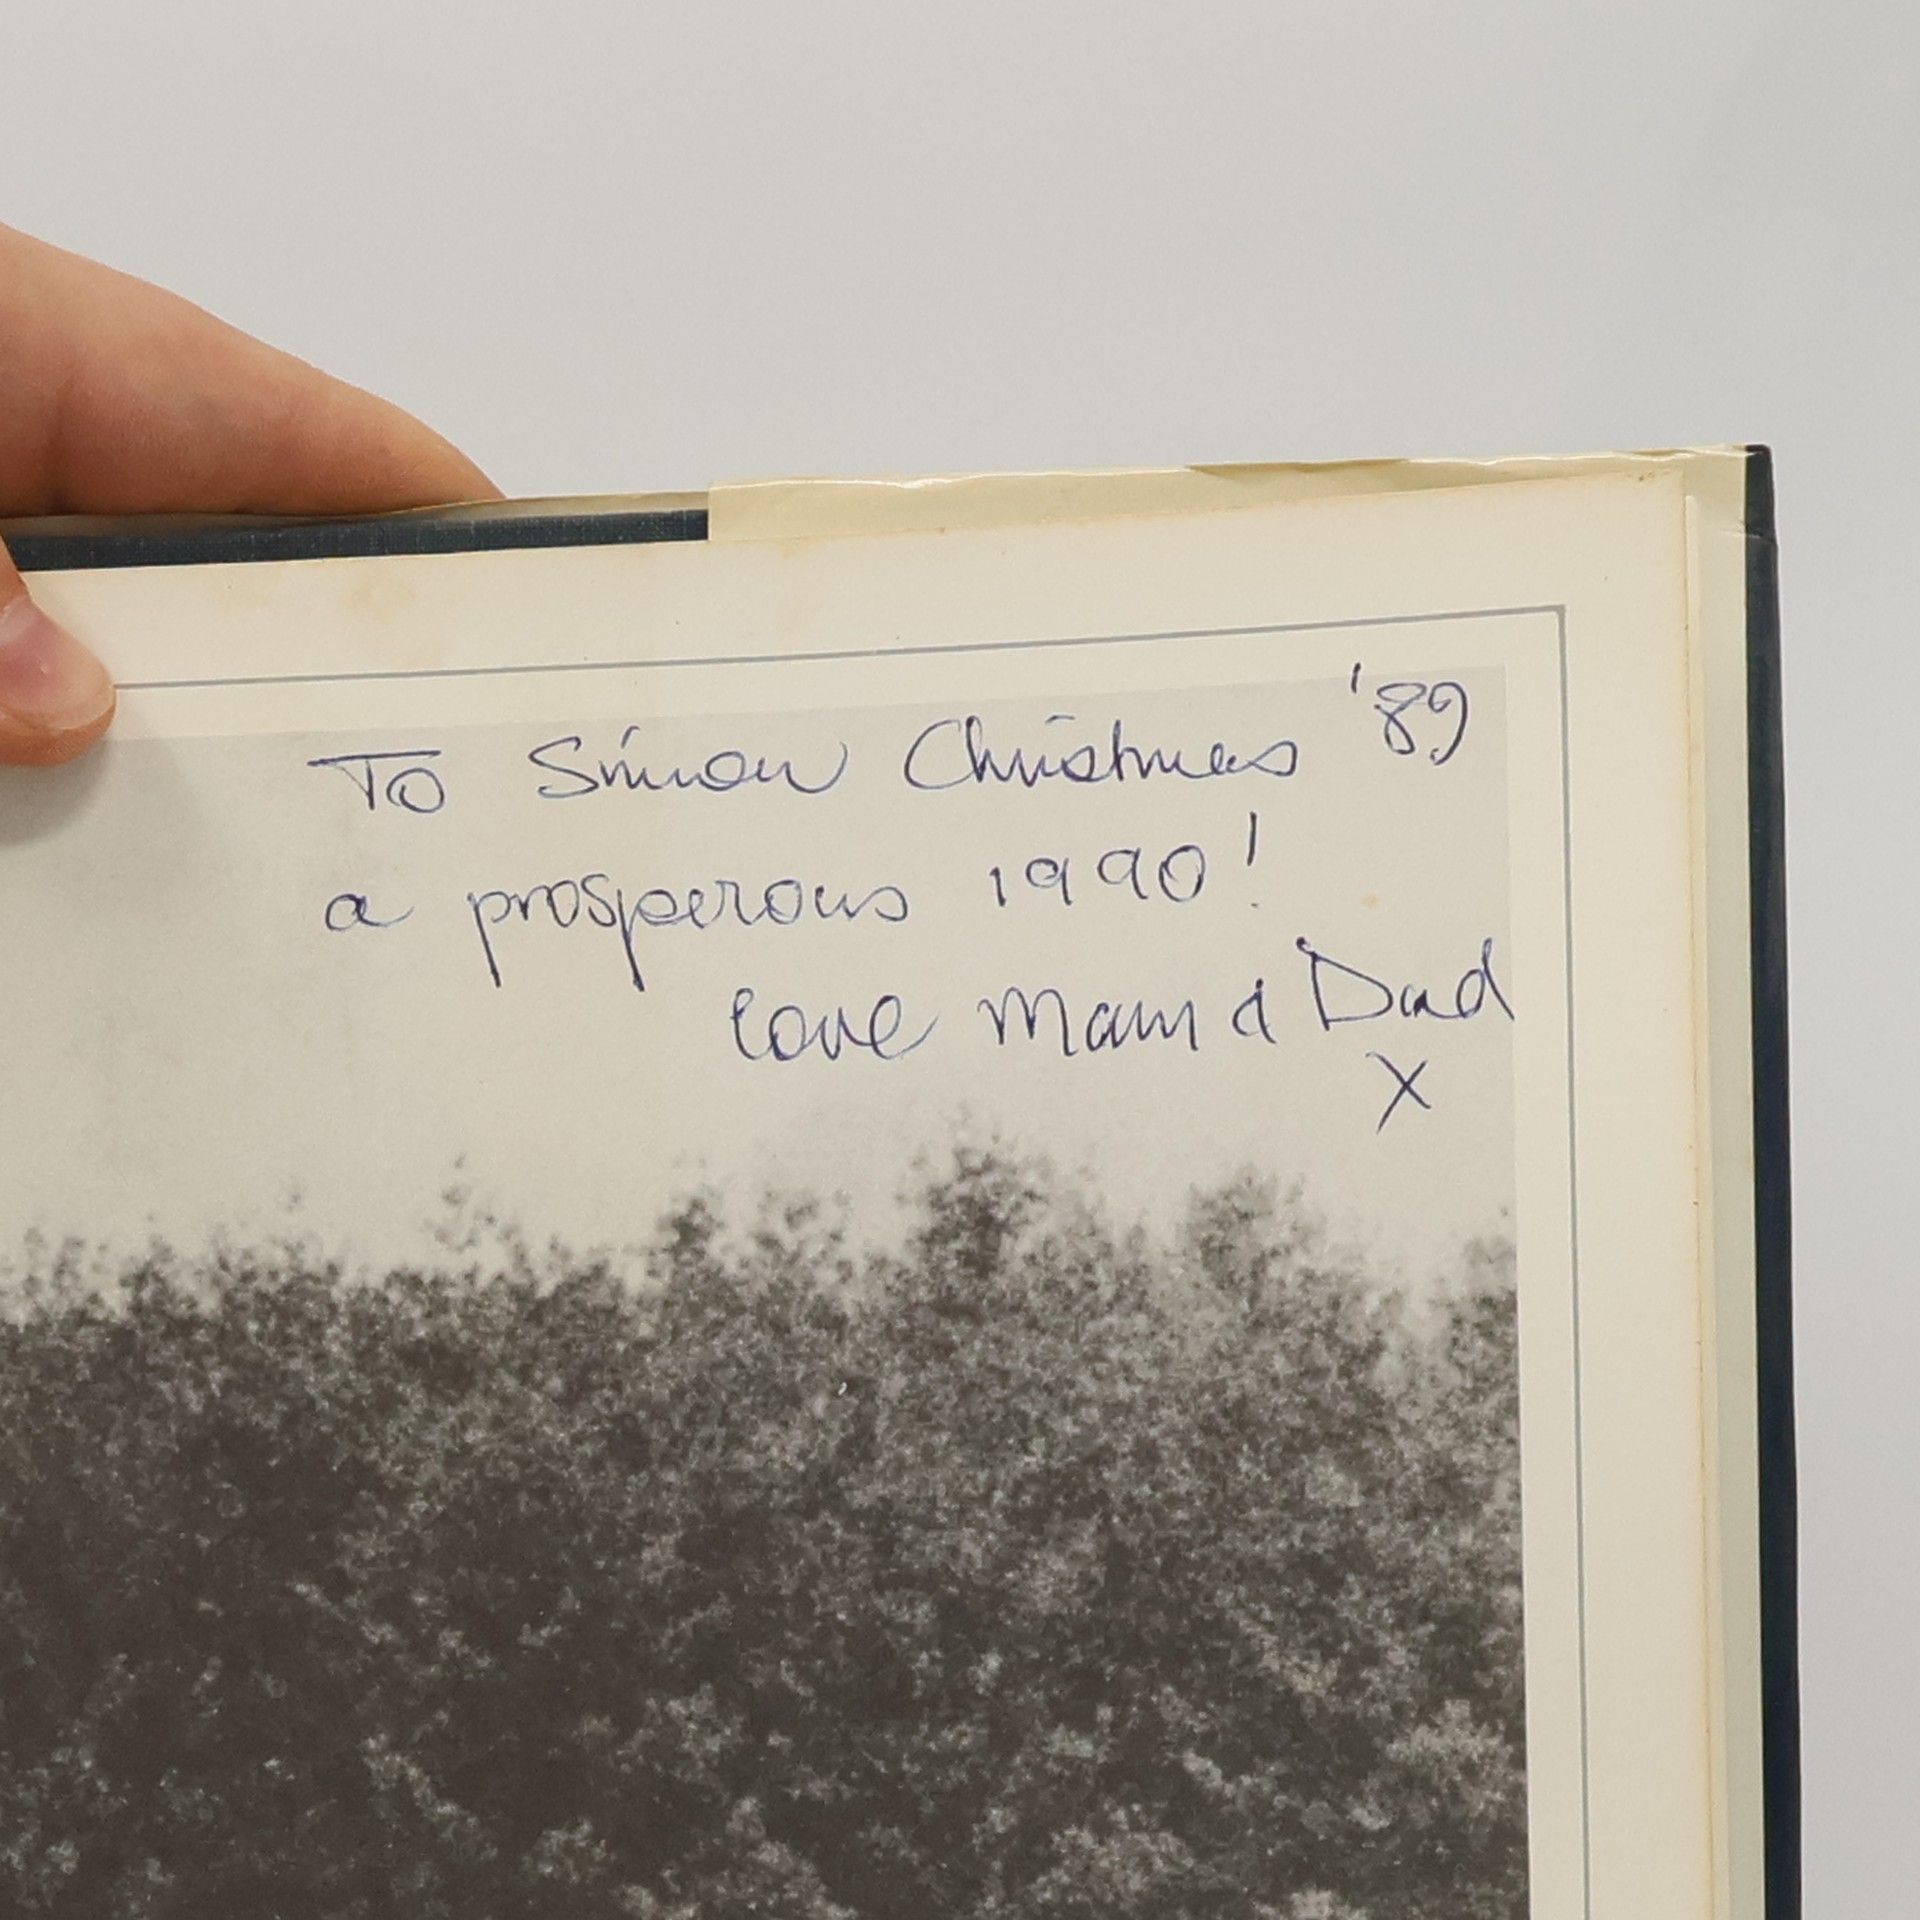 To Simon Christmas '89
a prosperous 1990!
love Mam & Dad
x